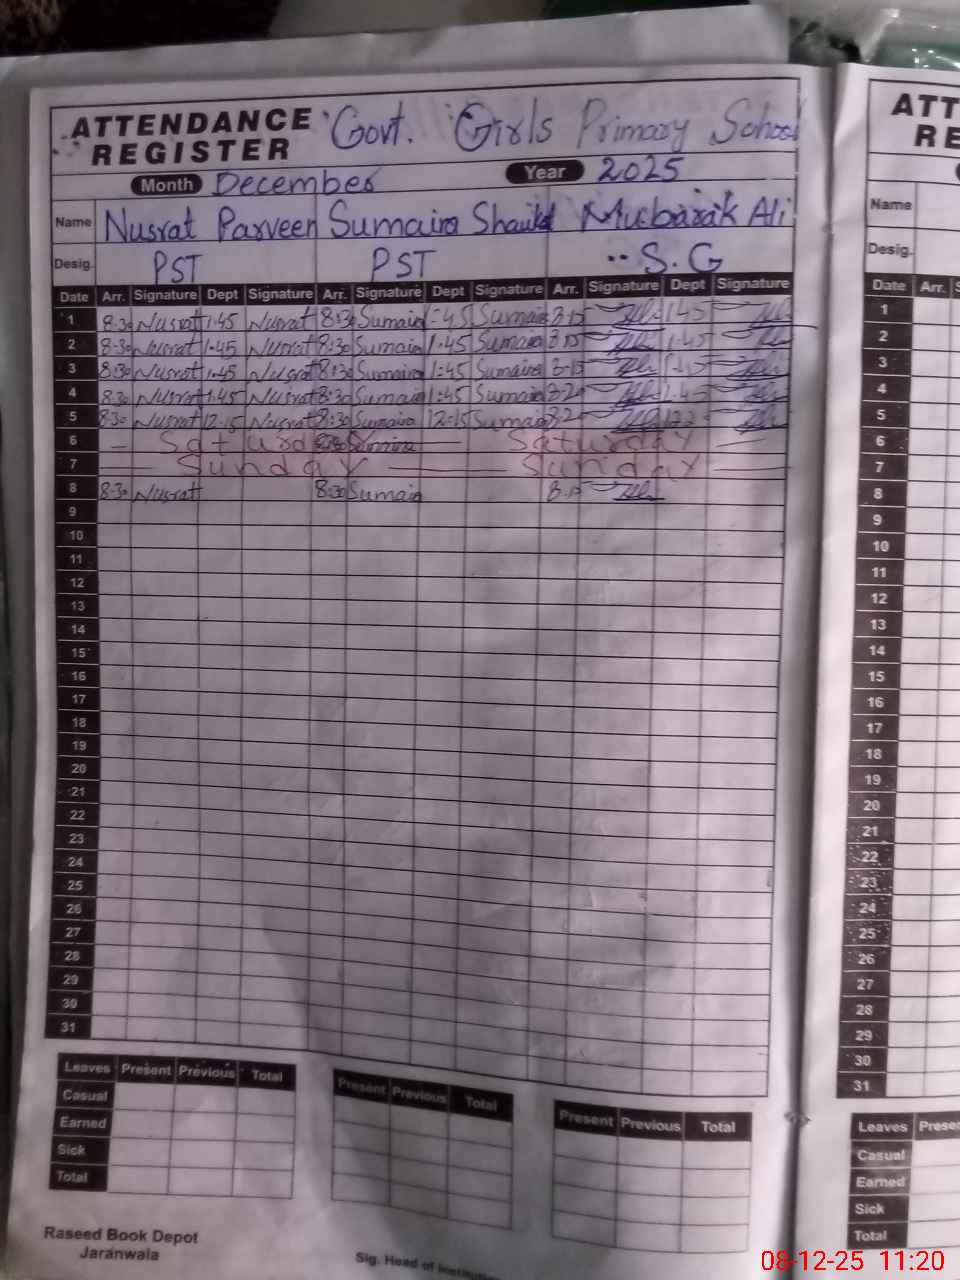 ATTENDANCE REGISTER Govt. Girls Primary School
Month December Year 2025
Name Nusrat Parveen Sumaira Mubarak Ali
Desig. PST PST S.G
Date Arr. Signature Dept Signature Arr. Signature Dept Signature Arr. Signature Dept Signature
1 8:30 Nusrat 1:45 Nusrat 8:30 Sumaira 1:45 Sumaira 8-15 1:45
2 8:30 Nusrat 1:45 Nusrat 8:30 Sumaira 1:45 Sumaira 8-15 1:45
3 8:30 Nusrat 1:45 Nusrat 8:30 Sumaira 1:45 Sumaira 8-15 1:45
4 8:30 Nusrat 1:45 Nusrat 8:30 Sumaira 1:45 Sumaira 8-20 1:45
5 8:30 Nusrat 12-15 Nusrat 8:30 Sumaira 12-15 Sumaira 8-20
6 Saturday Saturday
7 Sunday Sunday
8 8:30 Nusrat 8:30 Sumaira 8-15
9
10
11
12
13
14
15
16
17
18
19
20
21
22
23
24
25
26
27
28
29
30
31
Leaves Present Previous Total Present Previous Total Present Previous Total
Casual
Earned
Sick
Total
Raseed Book Depot
Jaranwala
Sig. Head of
ATT
RE
Name
Desig.
Date Arr.
1
2
3
4
5
6
7
8
9
10
11
12
13
14
15
16
17
18
19
20
21
22
23
24
25
26
27
28
29
30
31
Leaves
Casual
Earned
Sick
Total
08-12-25 11:20